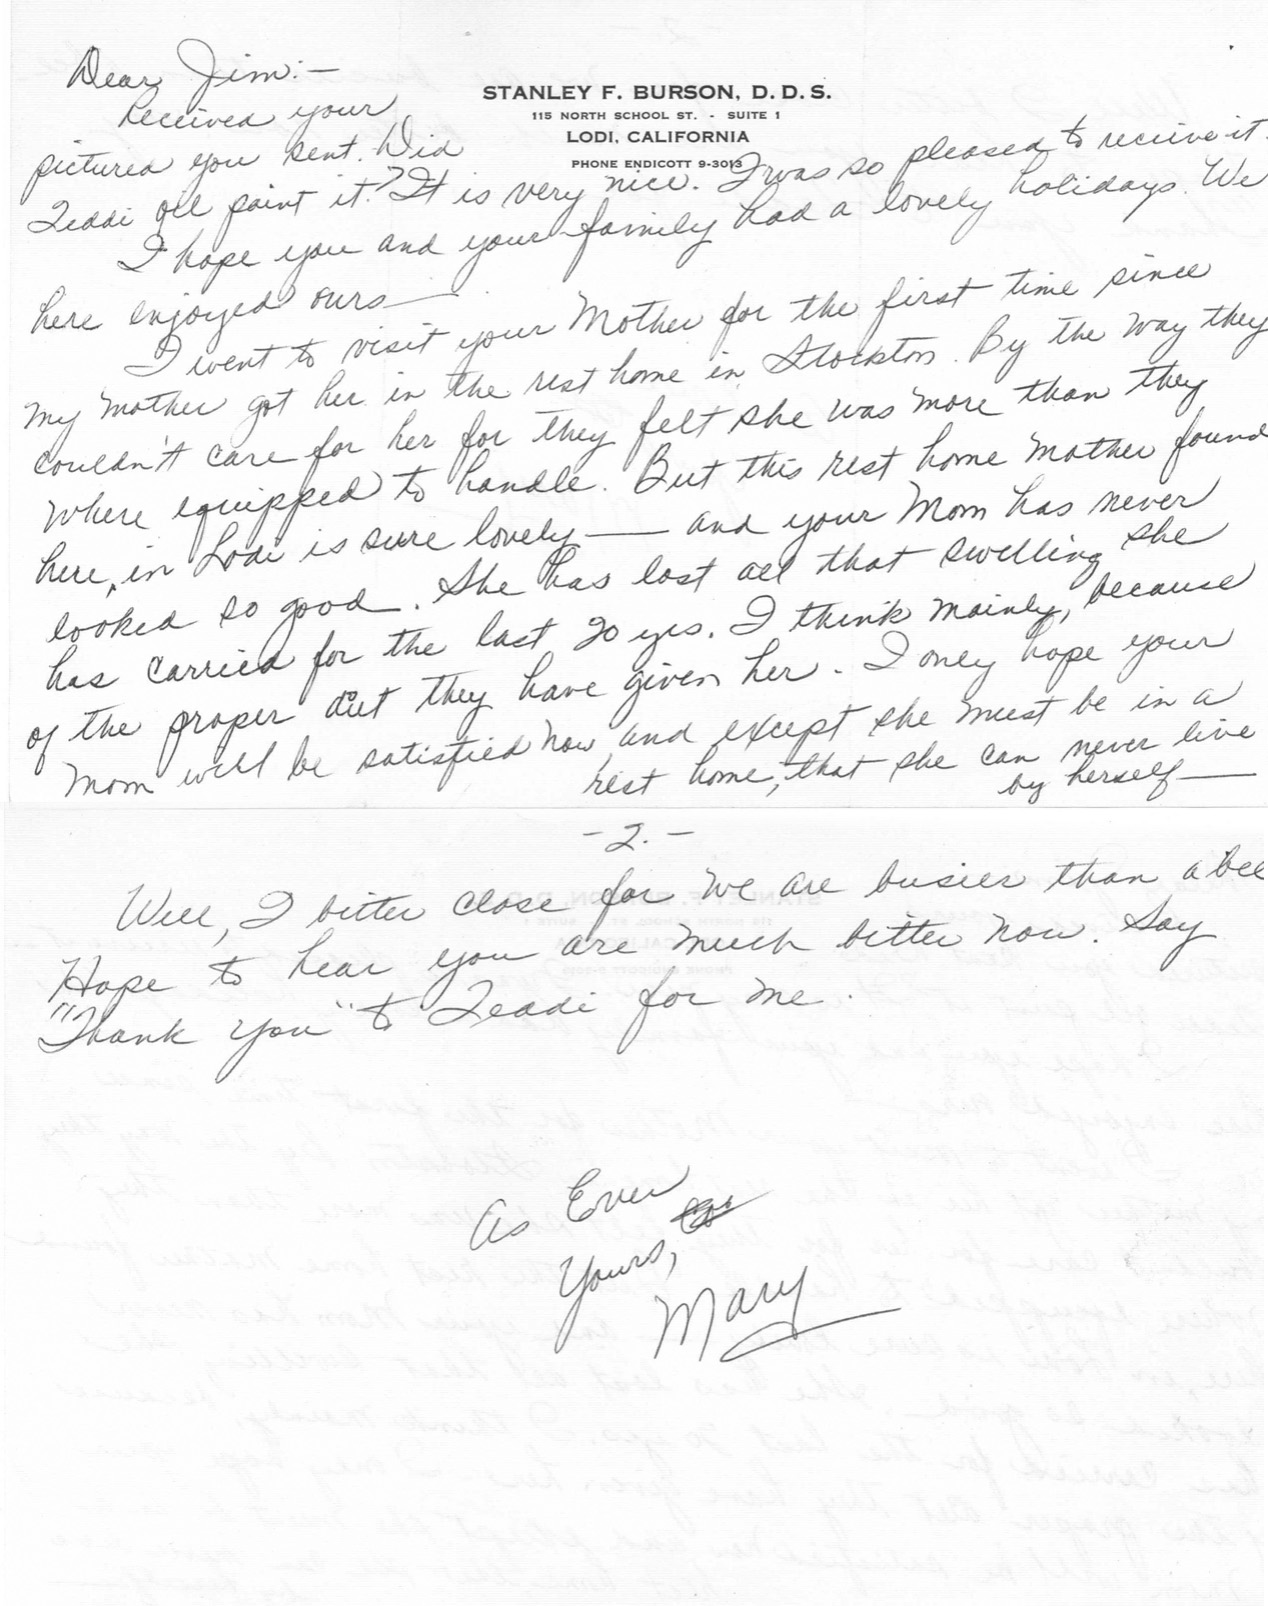 STANLEY F. BURSON, D.D.S.
115 NORTH SCHOOL ST. - SUITE 1
LODI, CALIFORNIA
PHONE ENDICOTT 9-3013
Dear Jim:—
Received your
pictured you sent. Did
Teddi oil paint it? It is very nice. I was so pleased to receive it.
I hope you and your family had a lovely holidays. We
here enjoyed ours—
I went to visit your Mother for the first time since
my mother got her in the rest home in Stockton. By the way they
couldn't care for her for they felt she was more than they
where equipped to handle. But this rest home Mother found
here, in Lodi is sure lovely — and your Mom has never
looked so good. She has lost all that swelling she
has carried for the last 20 yrs. I think mainly, because
of the proper diet they have given her. I only hope your
Mom will be satisfied now, and except she must be in a
rest home, that she can never live
by herself—
-2.-
Well, I better close for we are busier than a bee
Hope to hear you are much better now. Say
"Thank you" to Teddi for me.
As Ever
Yours,
Mary